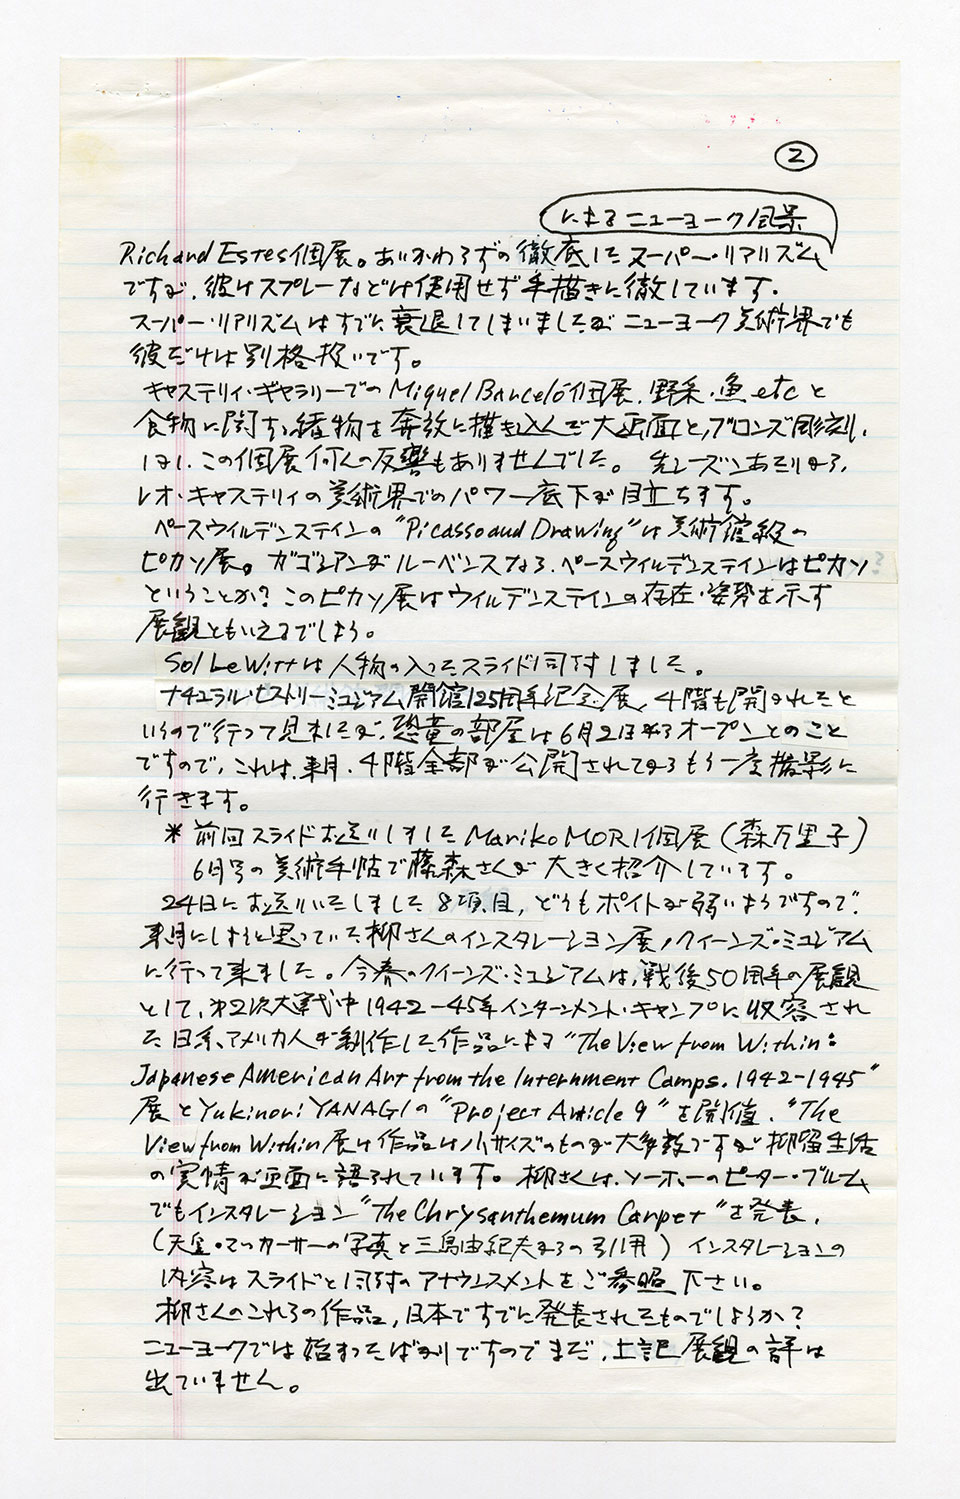 ②
によるニューヨーク風景
Richard Estes個展。あいかわらずの徹底したスーパー・リアリズム
ですが、彼はスプレーなどは使用せず手描きに徹しています。
スーパー・リアリズムはすでに衰退してしまいましたがニューヨーク美術界でも
彼だけは別格扱いです。
キャステリィ・ギャラリーでのMiquel Barceló個展、野菜・魚etcと
食物に関する静物を奔放に描き込んだ大画面と、ブロンズ彫刻、
しかし、この個展何んの反響もありませんでした。先シーズンあたりから、
レオ・キャステリィの美術界でのパワー底下が目立ちます。
ペースウイルデンステインの“Picasso and Drawing”は美術館級の
ピカソ展。ガゴシアンがルーベンスなら、ペースウイルデンステインはピカソ
ということか? このピカソ展はウイルデンステインの存在・姿勢を示す
展観ともいえるでしょう。
Sol LeWittは人物の入ったスライド同封しました。
ナチュラル・ヒストリーミュジアム開館125周年紀念展、4階も開かれたと
いうので行って見ましたが、恐竜の部屋は6月2日からオープンとのこと
ですので、これは、来月、4階全部が公開されてからもう一度撮影に
行きます。
＊前回スライドお送りしましたMariko MORI個展（森万里子）
6月号の美術手帖で藤森さんが大きく紹介しています。
24日にお送りいたしました8項目、どうもポイトが弱いようですので、
来月にしようと思っていた柳さんのインスタレーション展、クィーンズ・ミュジアム
に行って来ました。今春のクィーンズ・ミュジアムは、戦後50周年の展観
として、㐧2次大戦中1942-45年インターンメント・キャンプに収容され
た日系アメリカ人が制作した作品による“The View from Within:
Japanese American Art from the Internment Camps. 1942-1945”
展とYukinori YANAGIの“Project Article 9”を開催、“The
View from Within展は作品は小サイズのものが大多数ですが抑留生活
の実情が画面に語られています。柳さんは、ソーホーのピーター・ブルーム
でもインスタレーション“The Chrysanthemum Carpet”を発表、
（天皇・マッカーサーの写真と三島由紀夫からの引用）インスタレーションの
内容はスライドと同封のアナウンスメントをご参照下さい。
柳さんのこれらの作品、日本ですでに発表されたものでしょうか?
ニューヨークでは始まったばかりですのでまだ、上記展観の評は
出ていません。